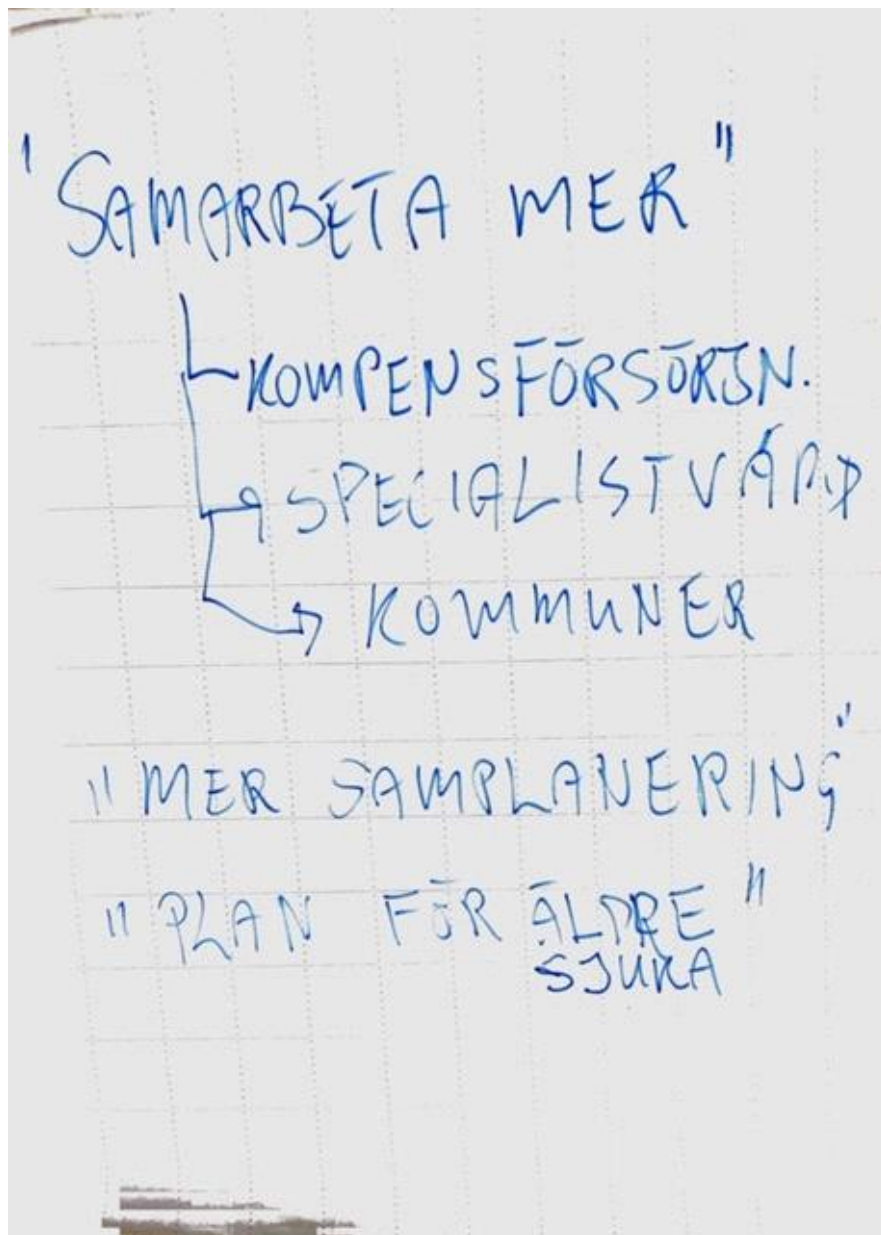 "SAMARBETA MER"
KOMPENSFÖRSÖRJN.
SPECIALISTVÅRD
KOMMUNER
"MER SAMPLANERING"
"PLAN FÖR ÄLDRE"
SJUKA